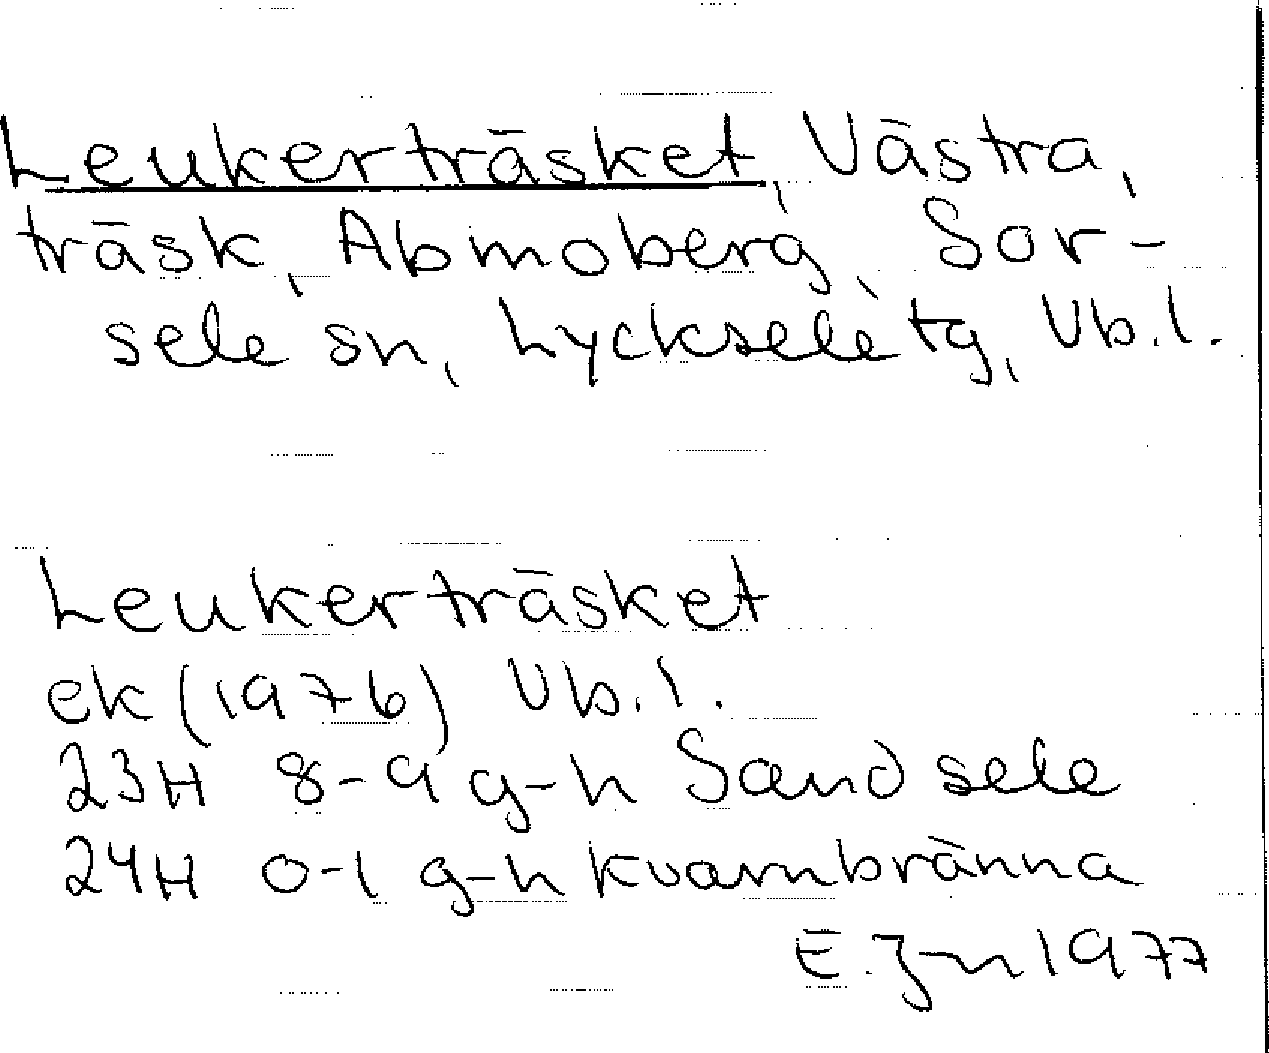 Leukerträsket, Västra,
träsk, Abmoberg, Sor-
sele sn, Lycksele tg, Vb.l.
Leukerträsket
ek (1976) Vb.l.
23H 8-9 g-h Sandsele
24H 0-1 g-h Kvarnbränna
E. J-n 1977